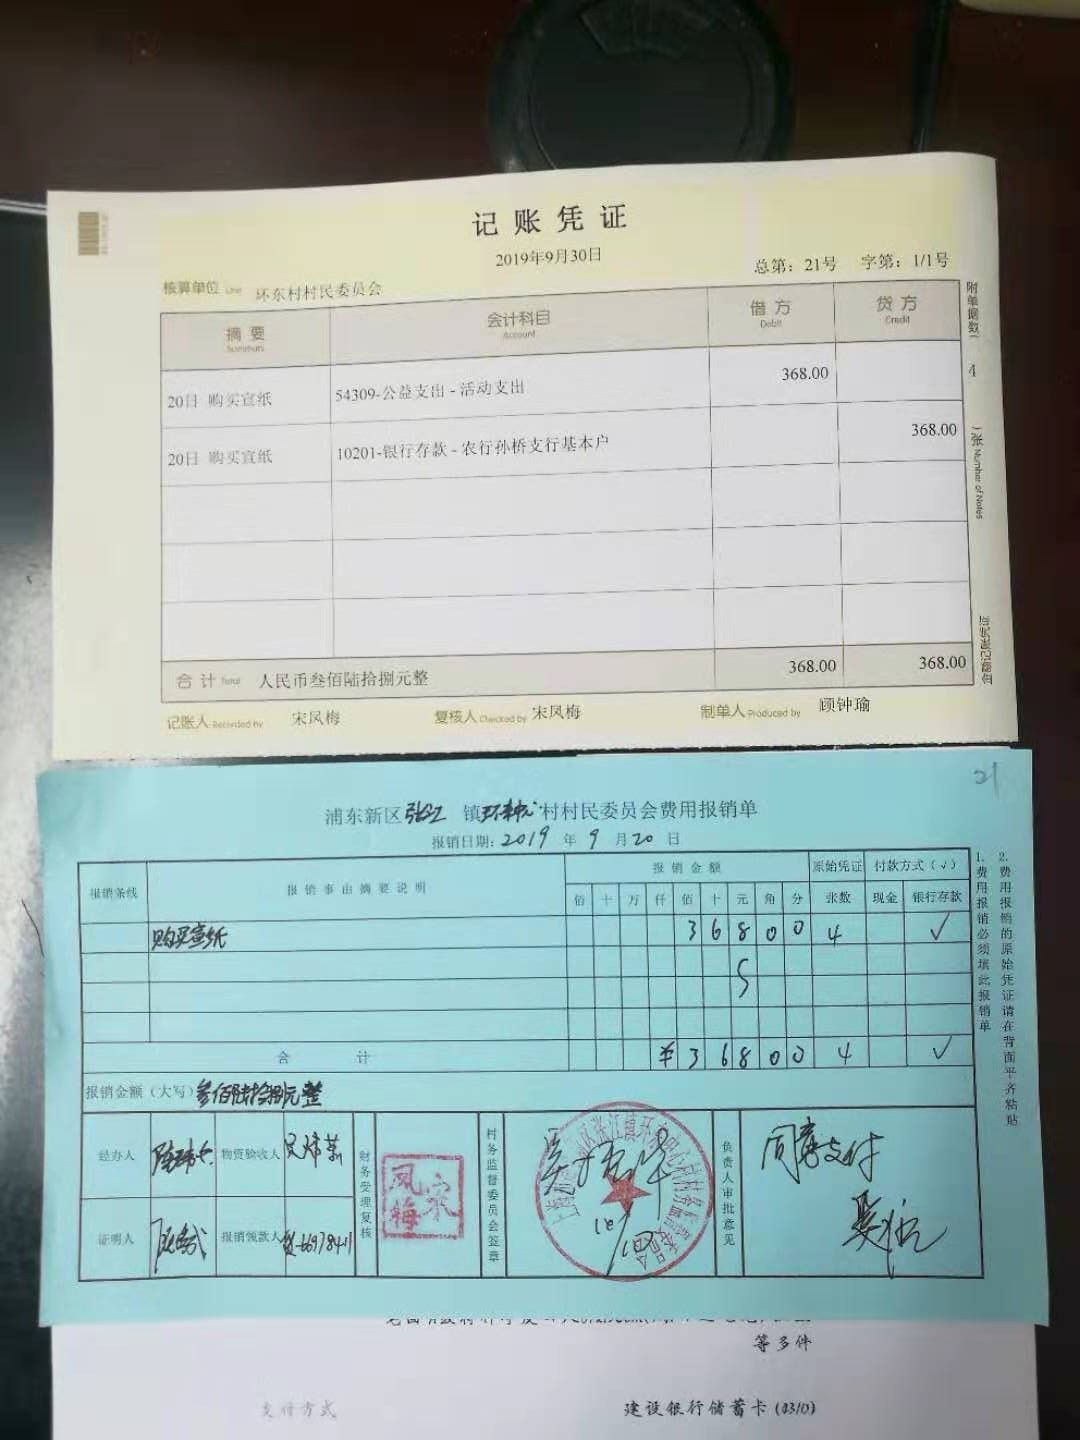 记账凭证
2019年9月30日
总第：21号 字第：1/1号
核算单位 Unit 环东村村民委员会
摘要 Summary 会计科目 Account 借方 Debit 贷方 Credit
20日 购买宣纸 54309-公益支出 - 活动支出 368.00
20日 购买宣纸 10201-银行存款 - 农行孙桥支行基本户 368.00
合计 Total 人民币叁佰陆拾捌元整 368.00 368.00
记账人 Recorded by 宋凤梅 复核人 Checked by 宋凤梅 制单人 Produced by 顾钟瑜
附单据数（ 4 ）张 Number of Notes
金额记账凭证
21
浦东新区张江镇环东中心村村民委员会费用报销单
报销日期：2019年9月20日
报销条线 报销事由摘要说明 报销金额 原始凭证 付款方式（√）
佰 十 万 仟 佰 十 元 角 分 张数 现金 银行存款
购买宣纸 3 6 8 0 0 4 √
合计 ¥ 3 6 8 0 0 4 √
报销金额（大写）叁佰陆拾捌元整
经办人 物资验收人
证明人 报销领款人
财务受理复核
宋凤梅
村务监督委员会签章
10/10
负责人审批意见
同意支付
1. 费用报销必须填此报销单
2. 费用报销的原始凭证请在背面平齐粘贴
等多件
支付方式 建设银行储蓄卡(4310)